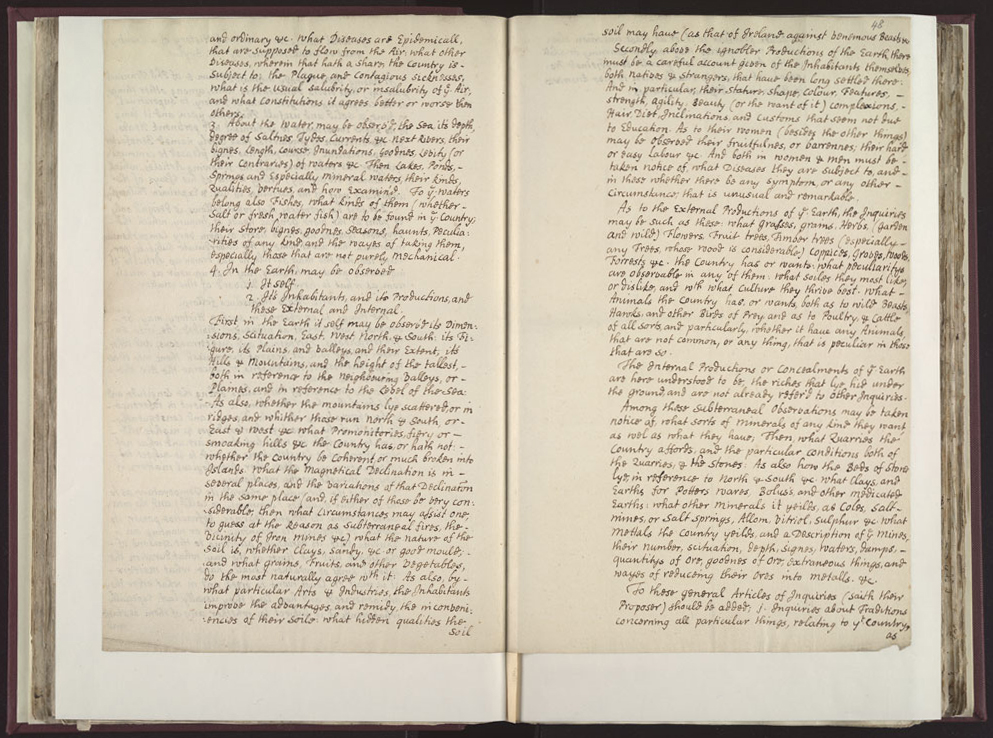 and ordinary &c. what Diseases are Epidemicall,
that are supposed to flow from the Air, what other
Diseases, wherein that hath a share, the Country is -
Subject to; the Plague, and Contagious sicknesses,
what is the usual salubrity, or insalubrity of yͤ Air,
and what Constitutions it agrees better or worse then
others.
3. About the water, may be observ'd, the Sea, its depth,
degree of Saltnes, Tydes, Currents, &c Next Rivers, their
bignes, Length, course, Inundations, goodnes, Levity (or
their Contraries) of waters, &c. Then Lakes, Ponds, -
Springs and Especially mineral waters, their kinds,
Qualities, vertues, and how Examind. To yͤ waters
belong also Fishes, what kinds of them (whether -
Salt or fresh water fish) are to be found in yͤ Country;
Their Store, bignes, goodnes, Seasons, haunts, Peculia:
:rities of any kind, and the wayes of taking them,
especially those that are not purely Mechanical.
4. In the Earth, may be observed
1. It self.
2. Its Inhabitants, and its Productions, and
these External and Internal.
First, in the Earth it self may be observ'd its Dimen:
:sions, Scituation, East, West, North, & South: its Fi:
:gure, its Plains, and Valleys, and their Extent; its
Hills & Mountains, and the height of the tallest, -
both in reference to the Neighbouring Valleys, or -
Plaines, and in reference to the Level of the Sea:
As also, whether the mountains lye scattered, or in
ridges, and whither those run North & South, or -
East & West &c what Promontories, fiery or -
smoaking hills &c the Country has, or hath not: -
whether the Country be Coherent, or much broken into
Islands. what the Magnetical Declination is in -
several places, and the variations of that Declination
in the same place (and, if either of those be very con:
:siderable, then what Circumstances may assist one,
to guess at the Reason as Subterraneal fires, the -
Vicinity of Iron mines &c) what the nature of the
Soil is, whether Clays, Sandy, &c. or good mould; -
and what grains, Fruits, and other Vegetables,
do the most naturally agree wᵗʰ it: As also, by -
what particular Arts & Industries, the Inhabitants
improve the advantages, and remidy the inconveni:
:encies of their Soile: what hidden qualities the
Soil
48.
soil may have (as that of Ireland against venemous Beasts.
Secondly, above the ignobler Productions of the Earth, there
must be a careful account given of the Inhabitants themselves,
both Natives & strangers, that have been long settled there:
And in particular, their stature, shape, colour, Features, -
strength, agility, Beauty (or the want of it) complexions, -
Hair, Diet, Inclinations, and Customs that seem not due
to Education. As to their women (besides the other things)
may be observed their fruitfulnes, or barrennes; their hard
or easy Labour &c. And both in women & men must be -
taken notice of, what Diseases they are subject to, and -
in these whether there be any symptom, or any other -
Circumstance, that is unusual and remarkable.
As to the External Productions of yͤ Earth, the Inquiries
may be such as these: what Grasses, grains, Herbs, (garden
and wild) Flowers, Fruit trees, Timber trees (especially -
any Trees, whose wood is considerable) Coppices, Groves, woods,
Forrests &c. the Country has or wants: what peculiaritys
are observable in any of them: what soiles they most like,
or dislike, and wᵗʰ what Culture they thrive best. what -
Animals the Country has, or wants, both as to wild Beasts,
Hawks, and other Birds of Prey, and as to Poultry, & Cattle
of all sorts, and particularly, whether it have any Animals,
that are not common, or any thing, that is peculiar in those
that are so.
The Internal Productions or Concealments of yͤ Earth
are here understood to be, the riches that lye hid under
the ground, and are not already refer'd to other Inquiries.
Among these Subterraneal Observations may be taken
notice of, what sorts of minerals of any kind they want
as wel as what they have; Then, what Quarries the
Country affords, and the particular conditions both of
the Quarries, & the Stones: As also how the Beds of Stone
lye, in reference to North & South &c. what Clays, and
Earths for Potters wares, Boluss, and other medicated
Earths: what other minerals it yeilds, as Coles, Salt-
mines, or Salt springs, Allom, Vitriol, sulphur &c. what
Mettals the Country yeilds, and a Description of yͤ Mines,
their number, scituation, depth, signes, waters, damps, -
quantitys of Ore, goodnes of Ore, Extraneous things, and
wayes of reduceing their Ores into metalls. &c.
To these general Articles of Inquiries (saith their
Proposer) should be added; 1. Inquiries about Traditions
concerning all particular things, relating to yᵗ Country,
as